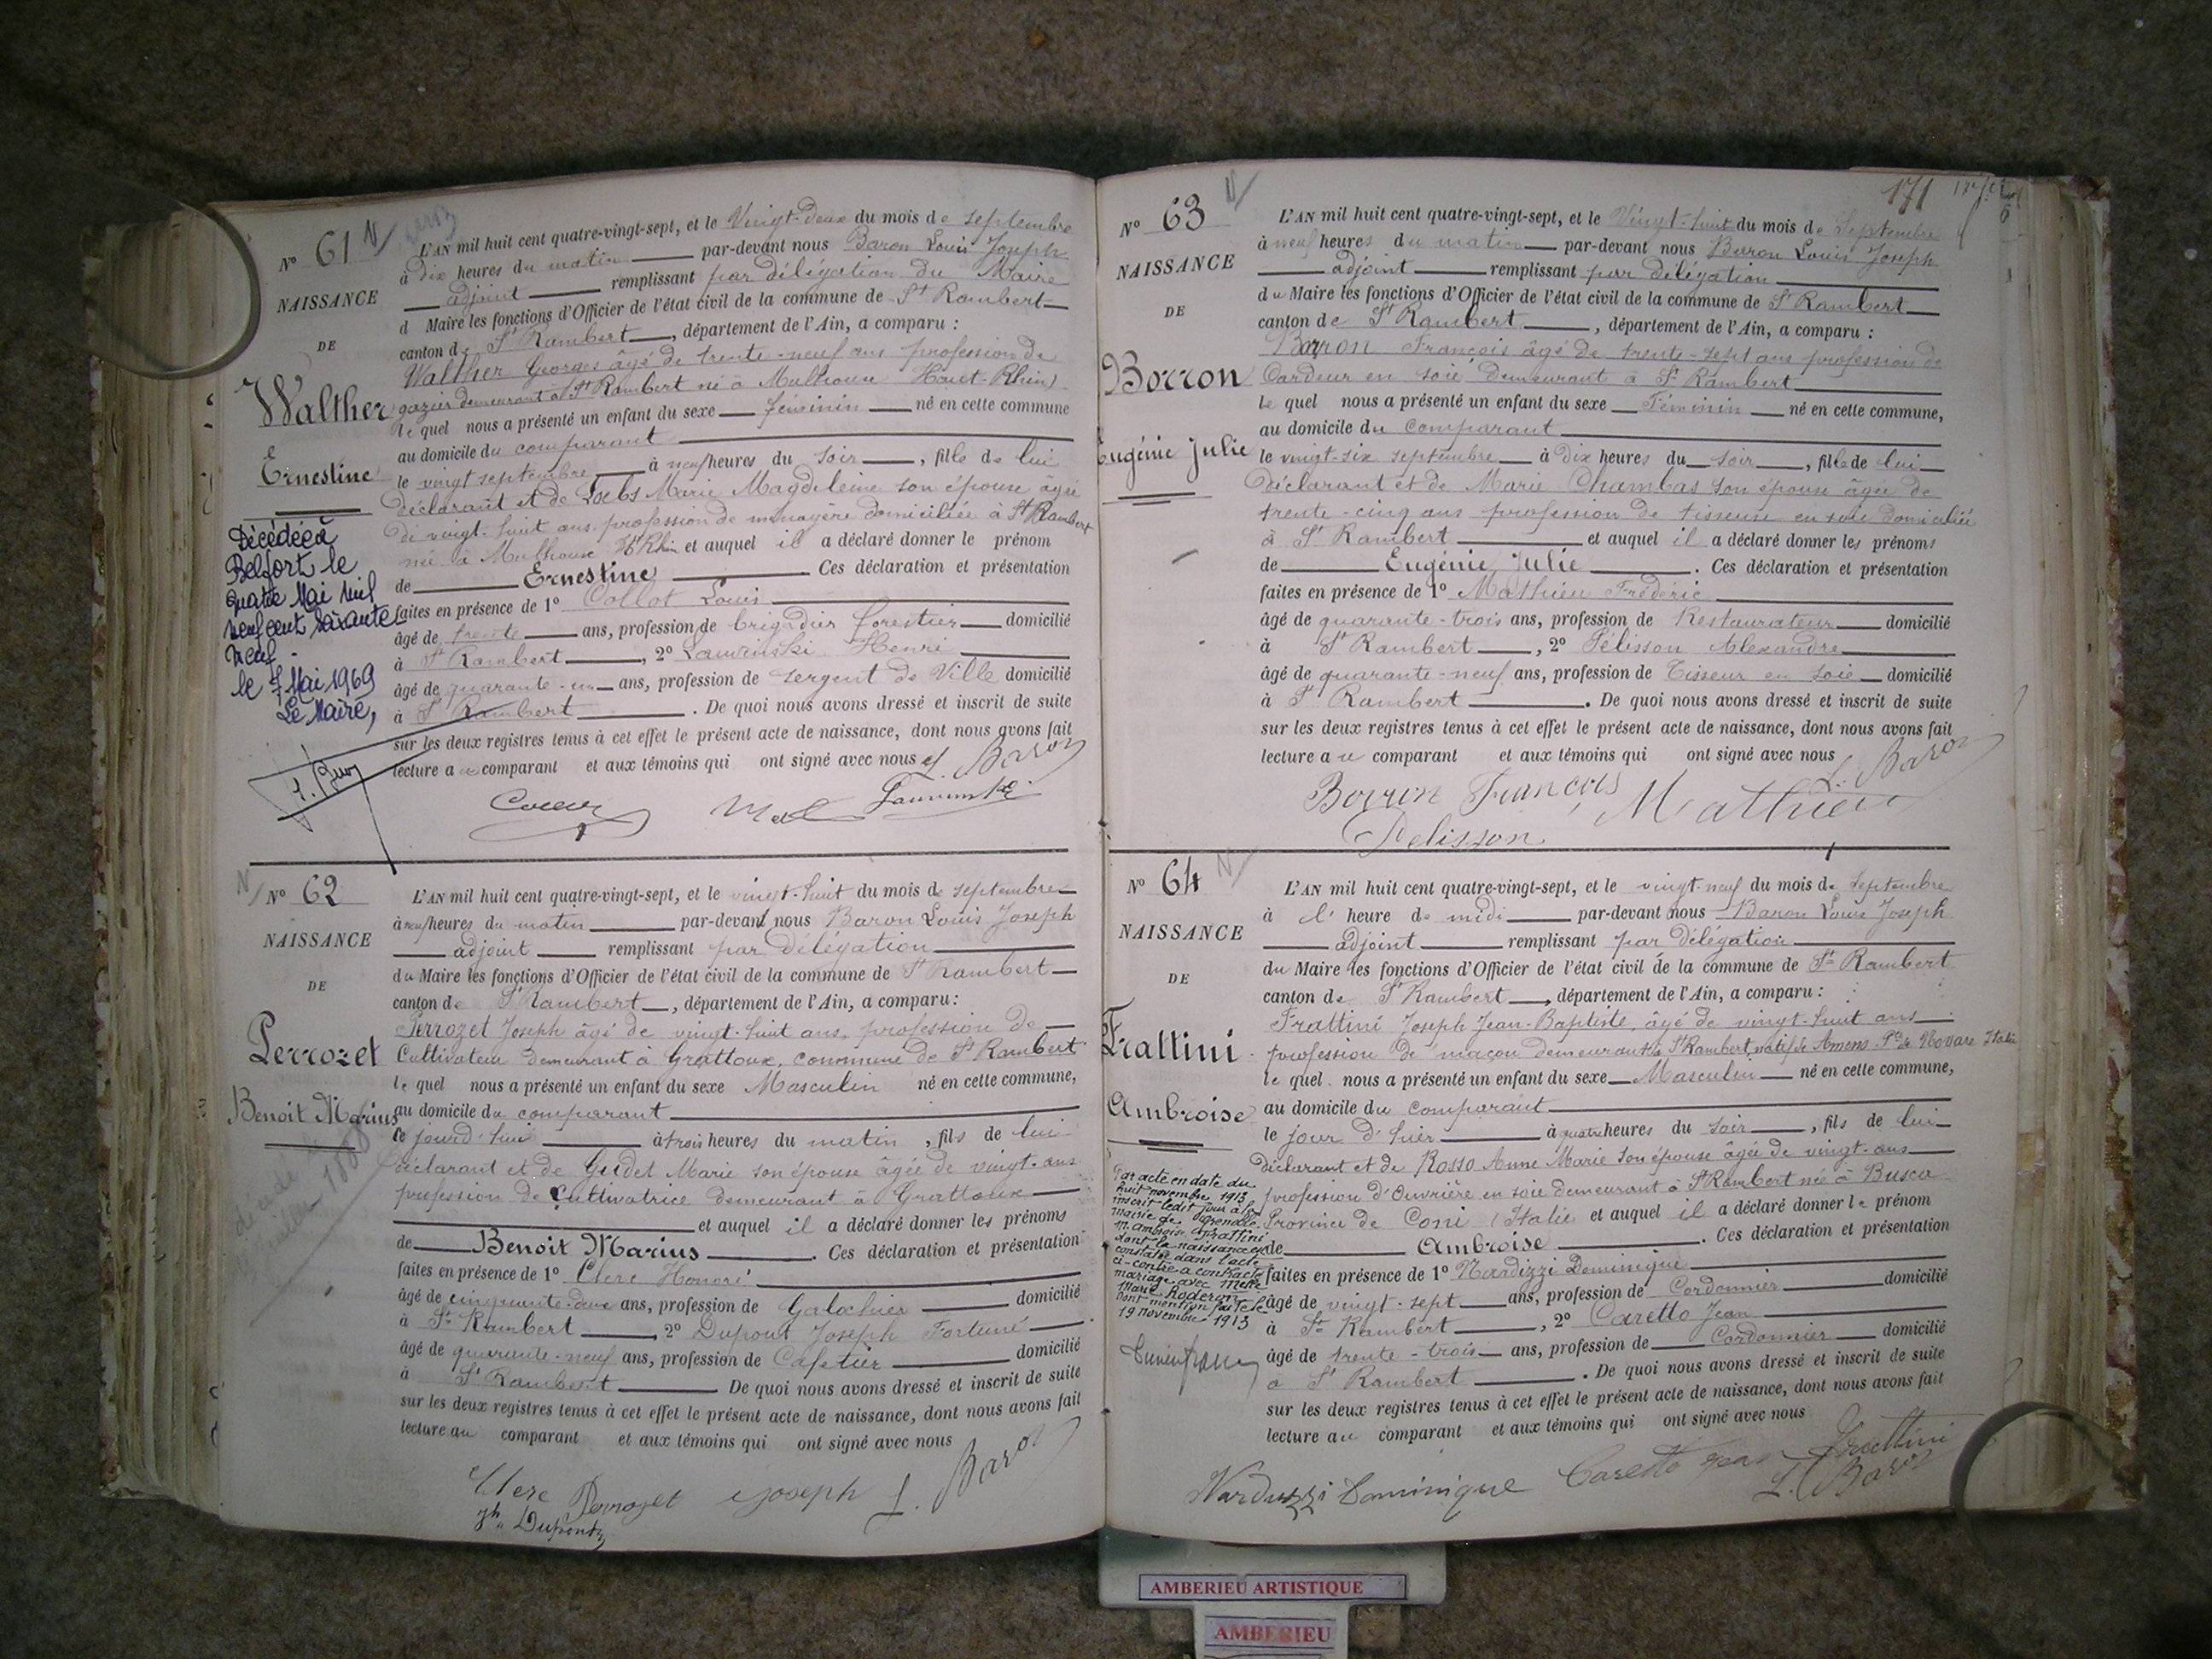 N° 61
NAISSANCE
DE
Walther
Ernestine
Décédée à
Belfort le
quatre Mai mil
neuf cent soixante
neuf -
le 7 Mai 1969
Le Maire,
L'AN mil huit cent quatre-vingt-sept, et le Vingt-deux du mois de septembre
à dix heures du matin par-devant nous Baron Louis Joseph
adjoint remplissant par délégation du Maire
d Maire les fonctions d'Officier de l'état civil de la commune de St Rambert
canton de St Rambert, département de l'Ain, a comparu :
Walther Georges âgé de trente-neuf ans profession de
gazier demeurant à St Rambert né à Mulhouse Haut-Rhin)
le quel nous a présenté un enfant du sexe féminin né en cette commune
au domicile du comparant
le vingt septembre à neuf heures du soir, fille de lui
déclarant et de Loebs Marie Magdeleine son épouse âgée
de vingt-huit ans profession de ménagère domiciliée à St Rambert
née à Mulhouse Ht Rhin et auquel il a déclaré donner le prénom
de Ernestine Ces déclaration et présentation
faites en présence de 1° Collot Louis
âgé de trente ans, profession de brigadier forestier domicilié
à St Rambert, 2° Lawrinski Henri
âgé de quarante-un ans, profession de sergent de Ville domicilié
à St Rambert. De quoi nous avons dressé et inscrit de suite
sur les deux registres tenus à cet effet le présent acte de naissance, dont nous avons fait
lecture au comparant et aux témoins qui ont signé avec nous
L. Baron
N° 62
NAISSANCE
DE
Perrozet
Benoit Marius
décédé
1888
L'AN mil huit cent quatre-vingt-sept, et le vingt-huit du mois de septembre
à neuf heures du matin par-devant nous Baron Louis Joseph
adjoint remplissant par délégation
du Maire les fonctions d'Officier de l'état civil de la commune de St Rambert
canton de St Rambert, département de l'Ain, a comparu :
Perrozet Joseph âgé de vingt-huit ans, profession de
Cultivateur demeurant à Grattoux, commune de St Rambert
le quel nous a présenté un enfant du sexe Masculin né en cette commune,
au domicile du comparant
ce jourd'hui à trois heures du matin, fils de lui
déclarant et de Gudet Marie son épouse âgée de vingt-ans
profession de Cultivatrice demeurant à Grattoux
et auquel il a déclaré donner les prénoms
de Benoit Marius. Ces déclaration et présentation
faites en présence de 1° Clerc Honoré
âgé de cinquante-deux ans, profession de Galochier domicilié
à St Rambert, 2° Dupont Joseph Fortuné
âgé de quarante-neuf ans, profession de Cafetier domicilié
à St Rambert De quoi nous avons dressé et inscrit de suite
sur les deux registres tenus à cet effet le présent acte de naissance, dont nous avons fait
lecture au comparant et aux témoins qui ont signé avec nous
Clerc Perrozet Joseph L. Baron
Jh Dupont
171
N° 63
NAISSANCE
DE
Borron
Eugénie Julie
L'AN mil huit cent quatre-vingt-sept, et le Vingt-huit du mois de Septembre
à neuf heures du matin par-devant nous Baron Louis Joseph
adjoint remplissant par délégation
du Maire les fonctions d'Officier de l'état civil de la commune de St Rambert
canton de St Rambert, département de l'Ain, a comparu :
Borron François âgé de trente-sept ans profession de
Cardeur en soie demeurant à St Rambert
le quel nous a présenté un enfant du sexe Féminin né en cette commune,
au domicile du comparant
le vingt-six septembre à dix heures du soir, fille de lui
déclarant et de Marie Chambas son épouse âgée de
trente-cinq ans profession de tisseuse en soie domiciliée
à St Rambert et auquel il a déclaré donner les prénoms
de Eugénie Julie. Ces déclaration et présentation
faites en présence de 1° Mathieu Frédéric
âgé de quarante-trois ans, profession de Restaurateur domicilié
à St Rambert, 2° Pélisson Alexandre
âgé de quarante-neuf ans, profession de Tisseur en soie domicilié
à St Rambert. De quoi nous avons dressé et inscrit de suite
sur les deux registres tenus à cet effet le présent acte de naissance, dont nous avons fait
lecture au comparant et aux témoins qui ont signé avec nous
L. Baron
Borron François Mathieu
Pelisson
N° 64
NAISSANCE
DE
Frattini
Ambroise
Par acte en date du
huit novembre 1913
inscrit ledit jour à la
mairie de Grenoble
M. Ambroise Frattini
dont la naissance est
constatée dans l'acte
ci-contre a contracté
mariage avec Melle
Marie Roderon
Dont mention faite le
19 novembre 1913
L'AN mil huit cent quatre-vingt-sept, et le vingt-neuf du mois de Septembre
à l' heure de midi par-devant nous Baron Louis Joseph
adjoint remplissant par délégation
du Maire les fonctions d'Officier de l'état civil de la commune de St Rambert
canton de St Rambert, département de l'Ain, a comparu :
Frattini Joseph Jean-Baptiste, âgé de vingt-huit ans
profession de maçon demeurant à St Rambert, natif de Ameno Pce de Novare Italie
le quel nous a présenté un enfant du sexe Masculin né en cette commune,
au domicile du comparant
le jour d'hier à quatre heures du soir, fils de lui
déclarant et de Rosso Anne Marie son épouse âgée de vingt-ans
profession d'Ouvrière en soie demeurant à St Rambert née à Busca
Province de Coni (Italie et auquel il a déclaré donner le prénom
de Ambroise. Ces déclaration et présentation
faites en présence de 1° Nardizzi Dominique
âgé de vingt-sept ans, profession de Cordonnier domicilié
à St Rambert, 2° Caretto Jean
âgé de trente-trois ans, profession de Cordonnier domicilié
à St Rambert. De quoi nous avons dressé et inscrit de suite
sur les deux registres tenus à cet effet le présent acte de naissance, dont nous avons fait
lecture au comparant et aux témoins qui ont signé avec nous
Frattini
Narduzzi Dominique Caretto Jean L. Baron
AMBERIEU ARTISTIQUE
AMBERIEU